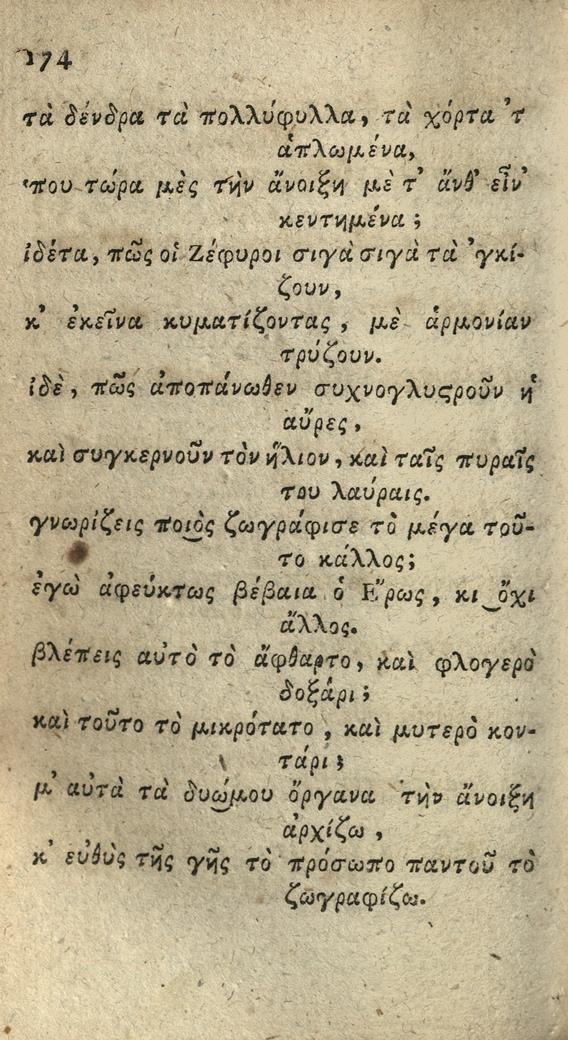 174
τὰ δένδρα τὰ πολλύφυλλα, τὰ χόρτα 'τ
ἁπλωμένα,
'που τώρα μὲς τὴν ἄνοιξη μὲ τ' ἄνθ' εἶν'
κεντημένα;
ἰδέτα, πῶς οἱ Ζέφυροι σιγὰ σιγὰ τὰ 'γκί-
ζουν,
κ' ἐκεῖνα κυματίζοντας, μὲ ἁρμονίαν
τρύζουν.
ἰδὲ, πῶς ἀποπάνωθεν συχνογλυϛροῦν ᾑ
αὔρες,
καὶ συγκερνοῦν τὸν ἥλιον, καὶ ταῖς πυραῖς
του λαύραις.
γνωρίζεις ποι͜ὸς ζωγράφισε τὸ μέγα τοῦ-
το κάλλος;
ἐγὼ ἀφεύκτως βέβαια ὁ Ἔρως, κι ͜ὄχι
ἄλλος.
βλέπεις αὐτὸ τὸ ἄφθαρτο, καὶ φλογερὸ
δοξάρι;
καὶ τοῦτο τὸ μικρότατο, καὶ μυτερὸ κον-
τάρι;
μ' αὐτὰ τὰ δυώ͜μου ὄργανα τὴν ἄνοιξη
ἀρχίζω,
κ' εὐθὺς τῆς γῆς τὸ πρόσωπο παντοῦ τὸ
ζωγραφίζω.